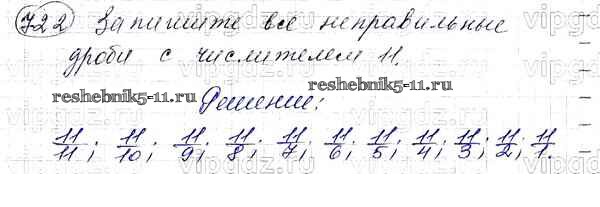 722 Запишите все неправильные
дроби с числителем 11.
reshebnik5-11.ru
reshebnik5-11.ru
Решение:
11/11; 11/10; 11/9; 11/8; 11/7; 11/6; 11/5; 11/4; 11/3; 11/2; 11/1.
vipgdz.com